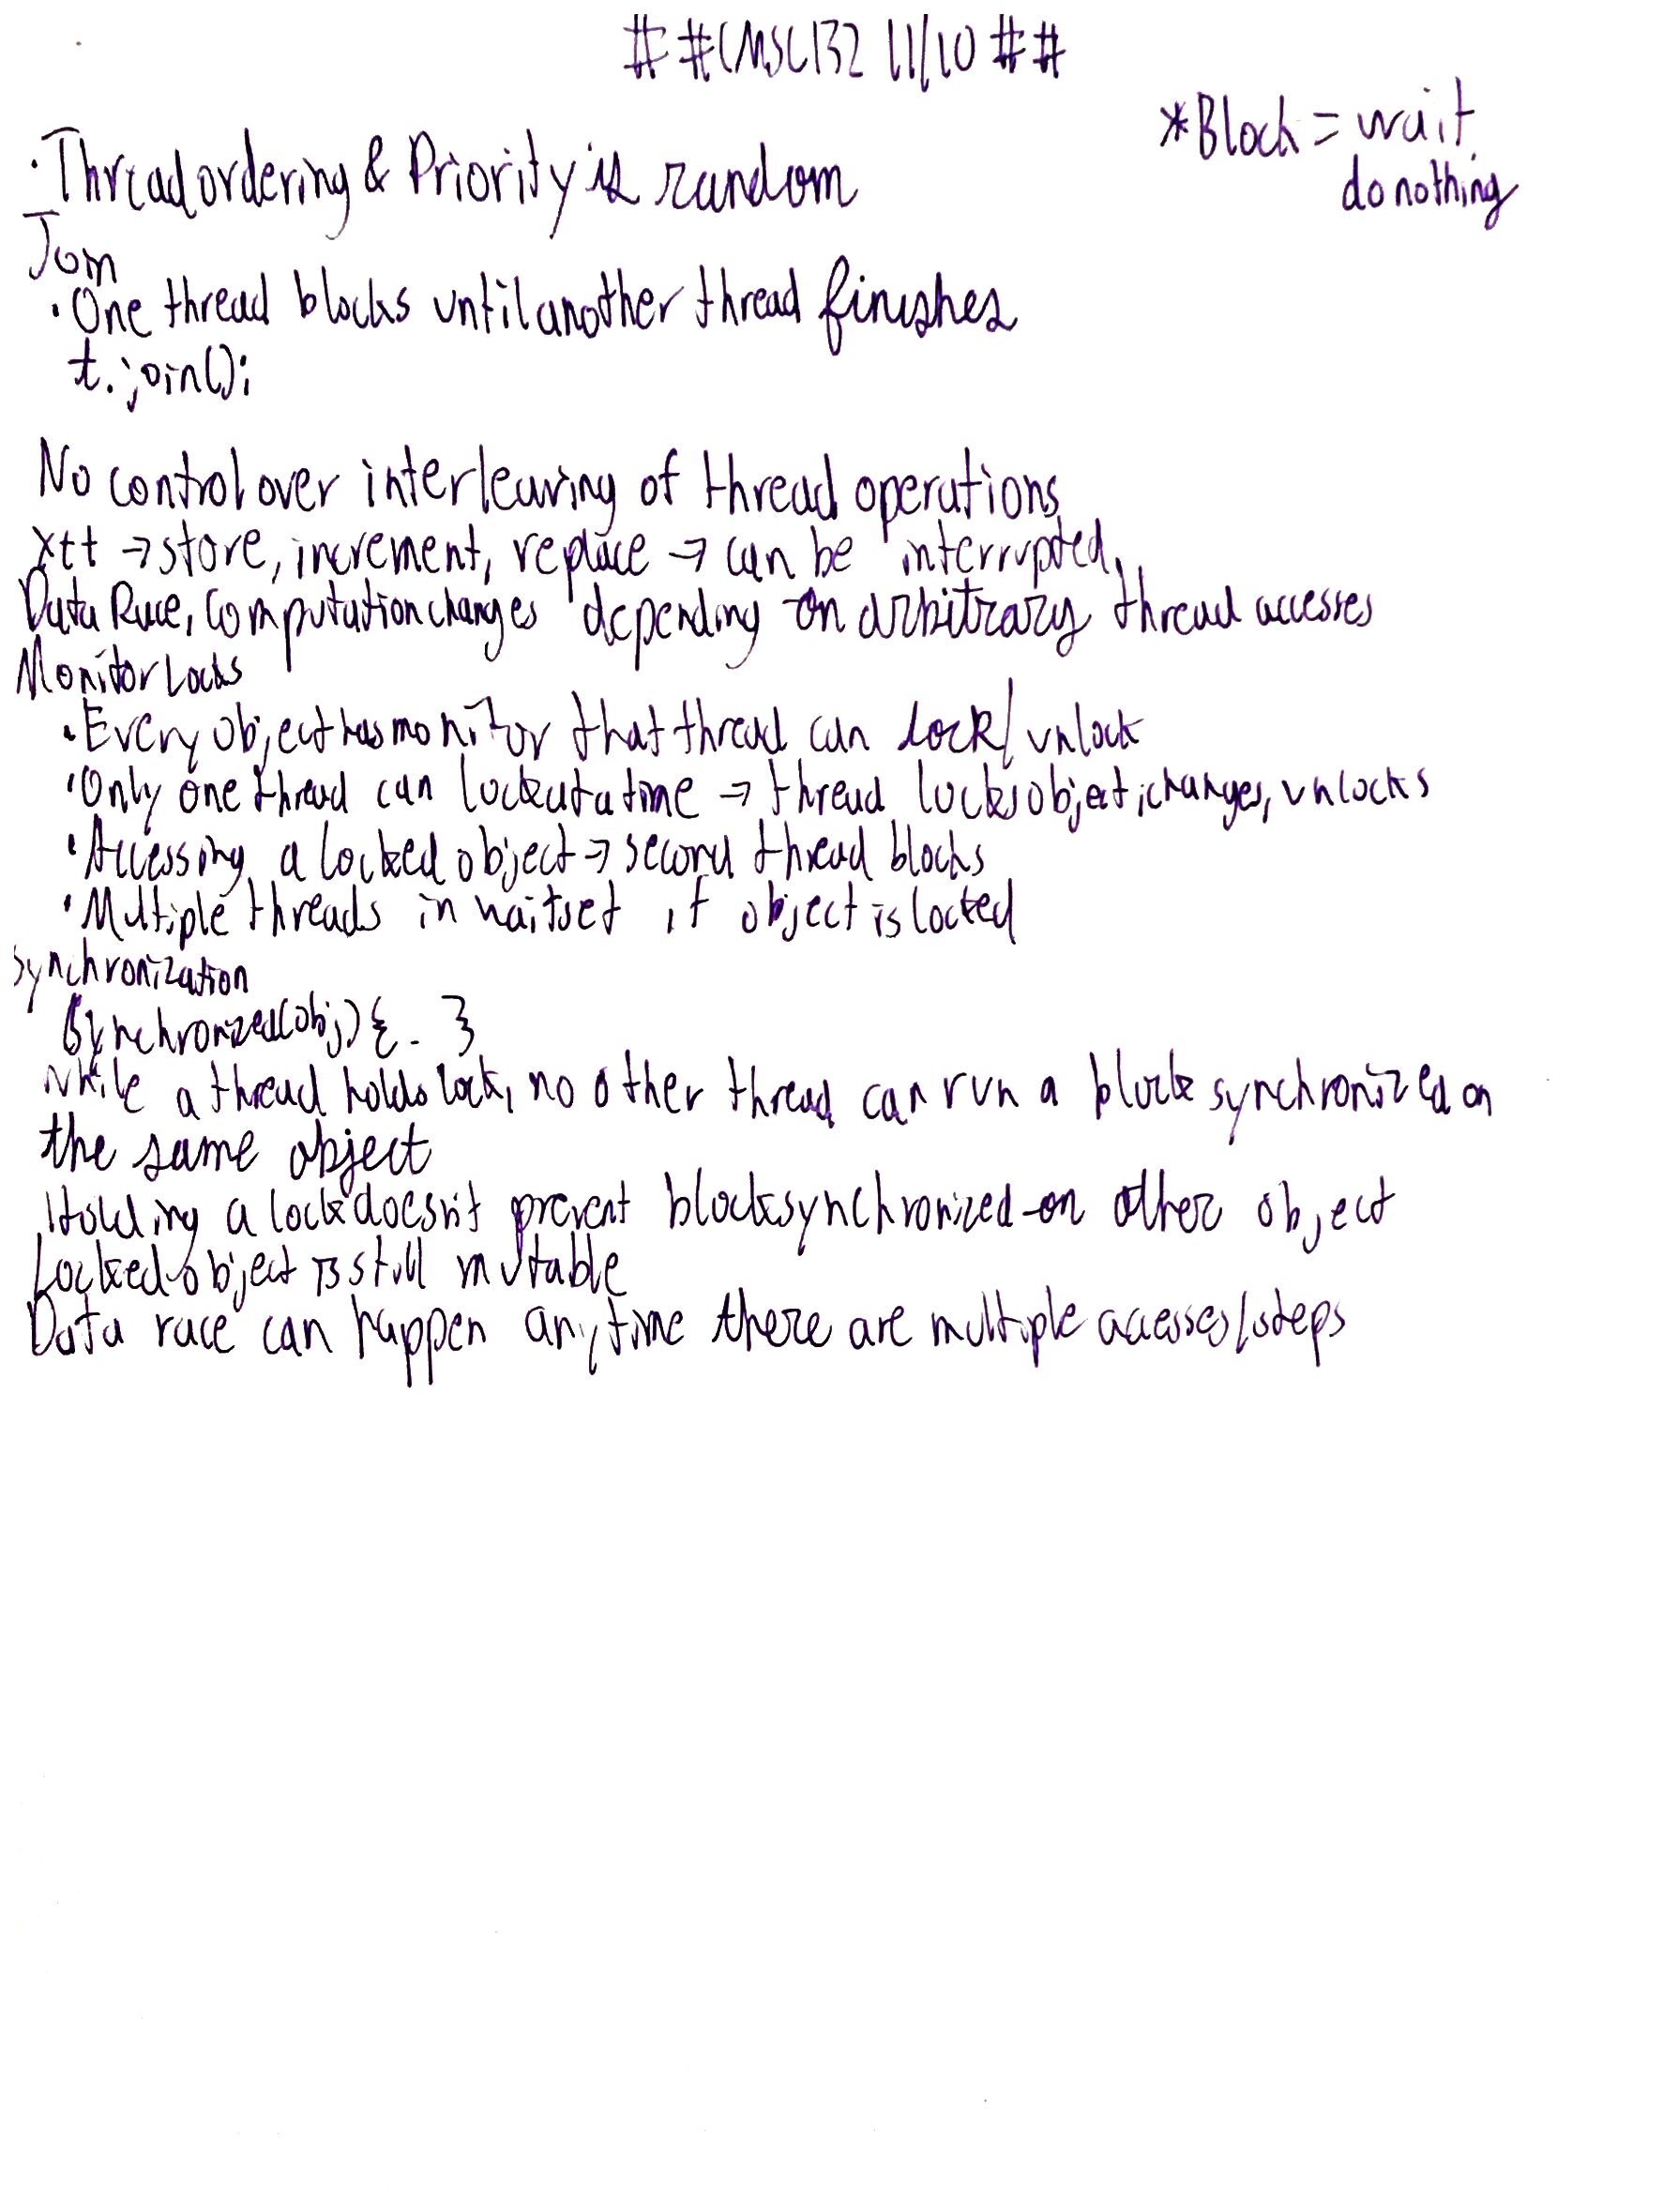 ##CMSC132 11/10##
*Block = wait
do nothing
· Thread ordering & Priority is random
Join
· One thread blocks until another thread finishes
t.join();
No control over interleaving of thread operations
X++ → store, increment, replace → can be interrupted
Data Race, Computation changes depending on arbitrary thread accesses
Monitor Locks
· Every object has monitor that thread can lock/unlock
· Only one thread can lock at a time → thread locks object, changes, unlocks
· Accessing a locked object → second thread blocks
· Multiple threads in waitset if object is locked
Synchronization
Synchronized(obj) {..}
While a thread holds lock, no other thread can run a block synchronized on
the same object
Holding a lock doesn't prevent blocks synchronized on other object
Locked object is still mutable
Data race can happen anytime there are multiple accesses/steps